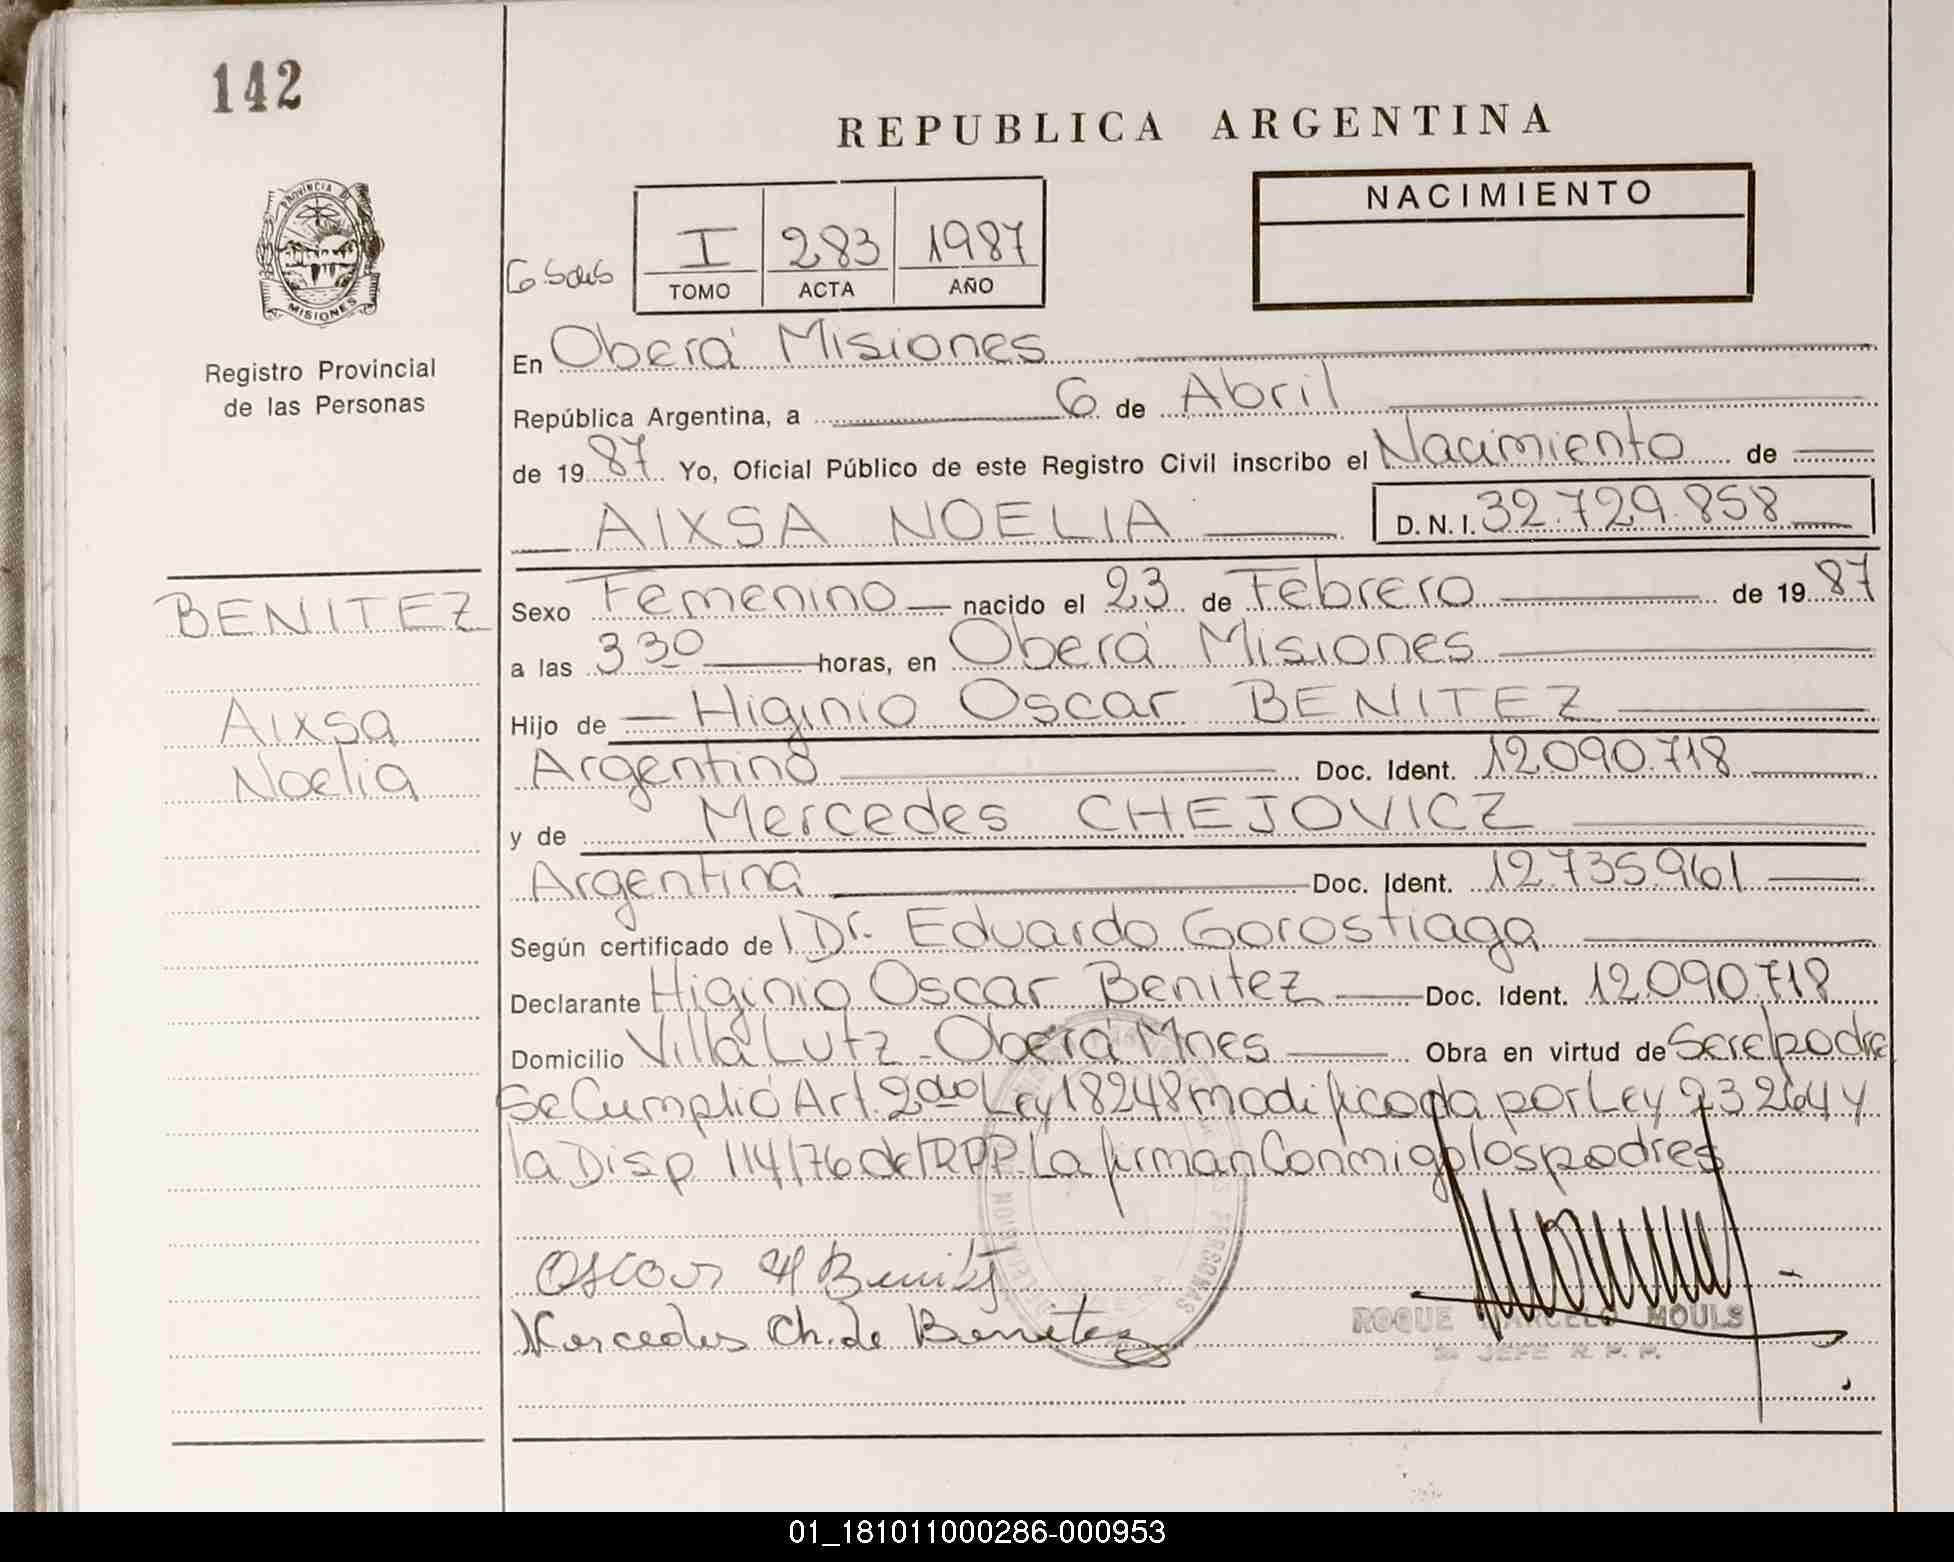 142
REPUBLICA ARGENTINA
NACIMIENTO
I 283 1987
TOMO ACTA AÑO
PROVINCIA D
MISIONES
Registro Provincial
de las Personas
En Oberá Misiones
República Argentina, a 6 de Abril
de 19 87 Yo, Oficial Público de este Registro Civil inscribo el Nacimiento de
AIXSA NOELIA D. N. I. 32.729.858
BENITEZ
Aixsa
Noelia
Sexo Femenino nacido el 23 de Febrero de 19 87
a las 3 30 horas, en Oberá Misiones
Hijo de Higinio Oscar BENITEZ
Argentino Doc. Ident. 12.090.718
y de Mercedes CHEJOVICZ
Argentina Doc. Ident. 12.735.961
Según certificado de l Dr. Eduardo Gorostiaga
Declarante Higinio Oscar Benitez Doc. Ident. 12.090.718
Domicilio Villa Lutz - Oberá Mnes Obra en virtud de Ser el padre
Se Cumplió Art. 2do Ley 18248 modificada por Ley 23264 y
la Disp 114/76 del RPP. La firman Conmigo los padres
Oscar H Benitez
Mercedes Ch. de Benitez
ROQUE MARCELO MOULS
JEFE R. P. P.
01_181011000286-000953